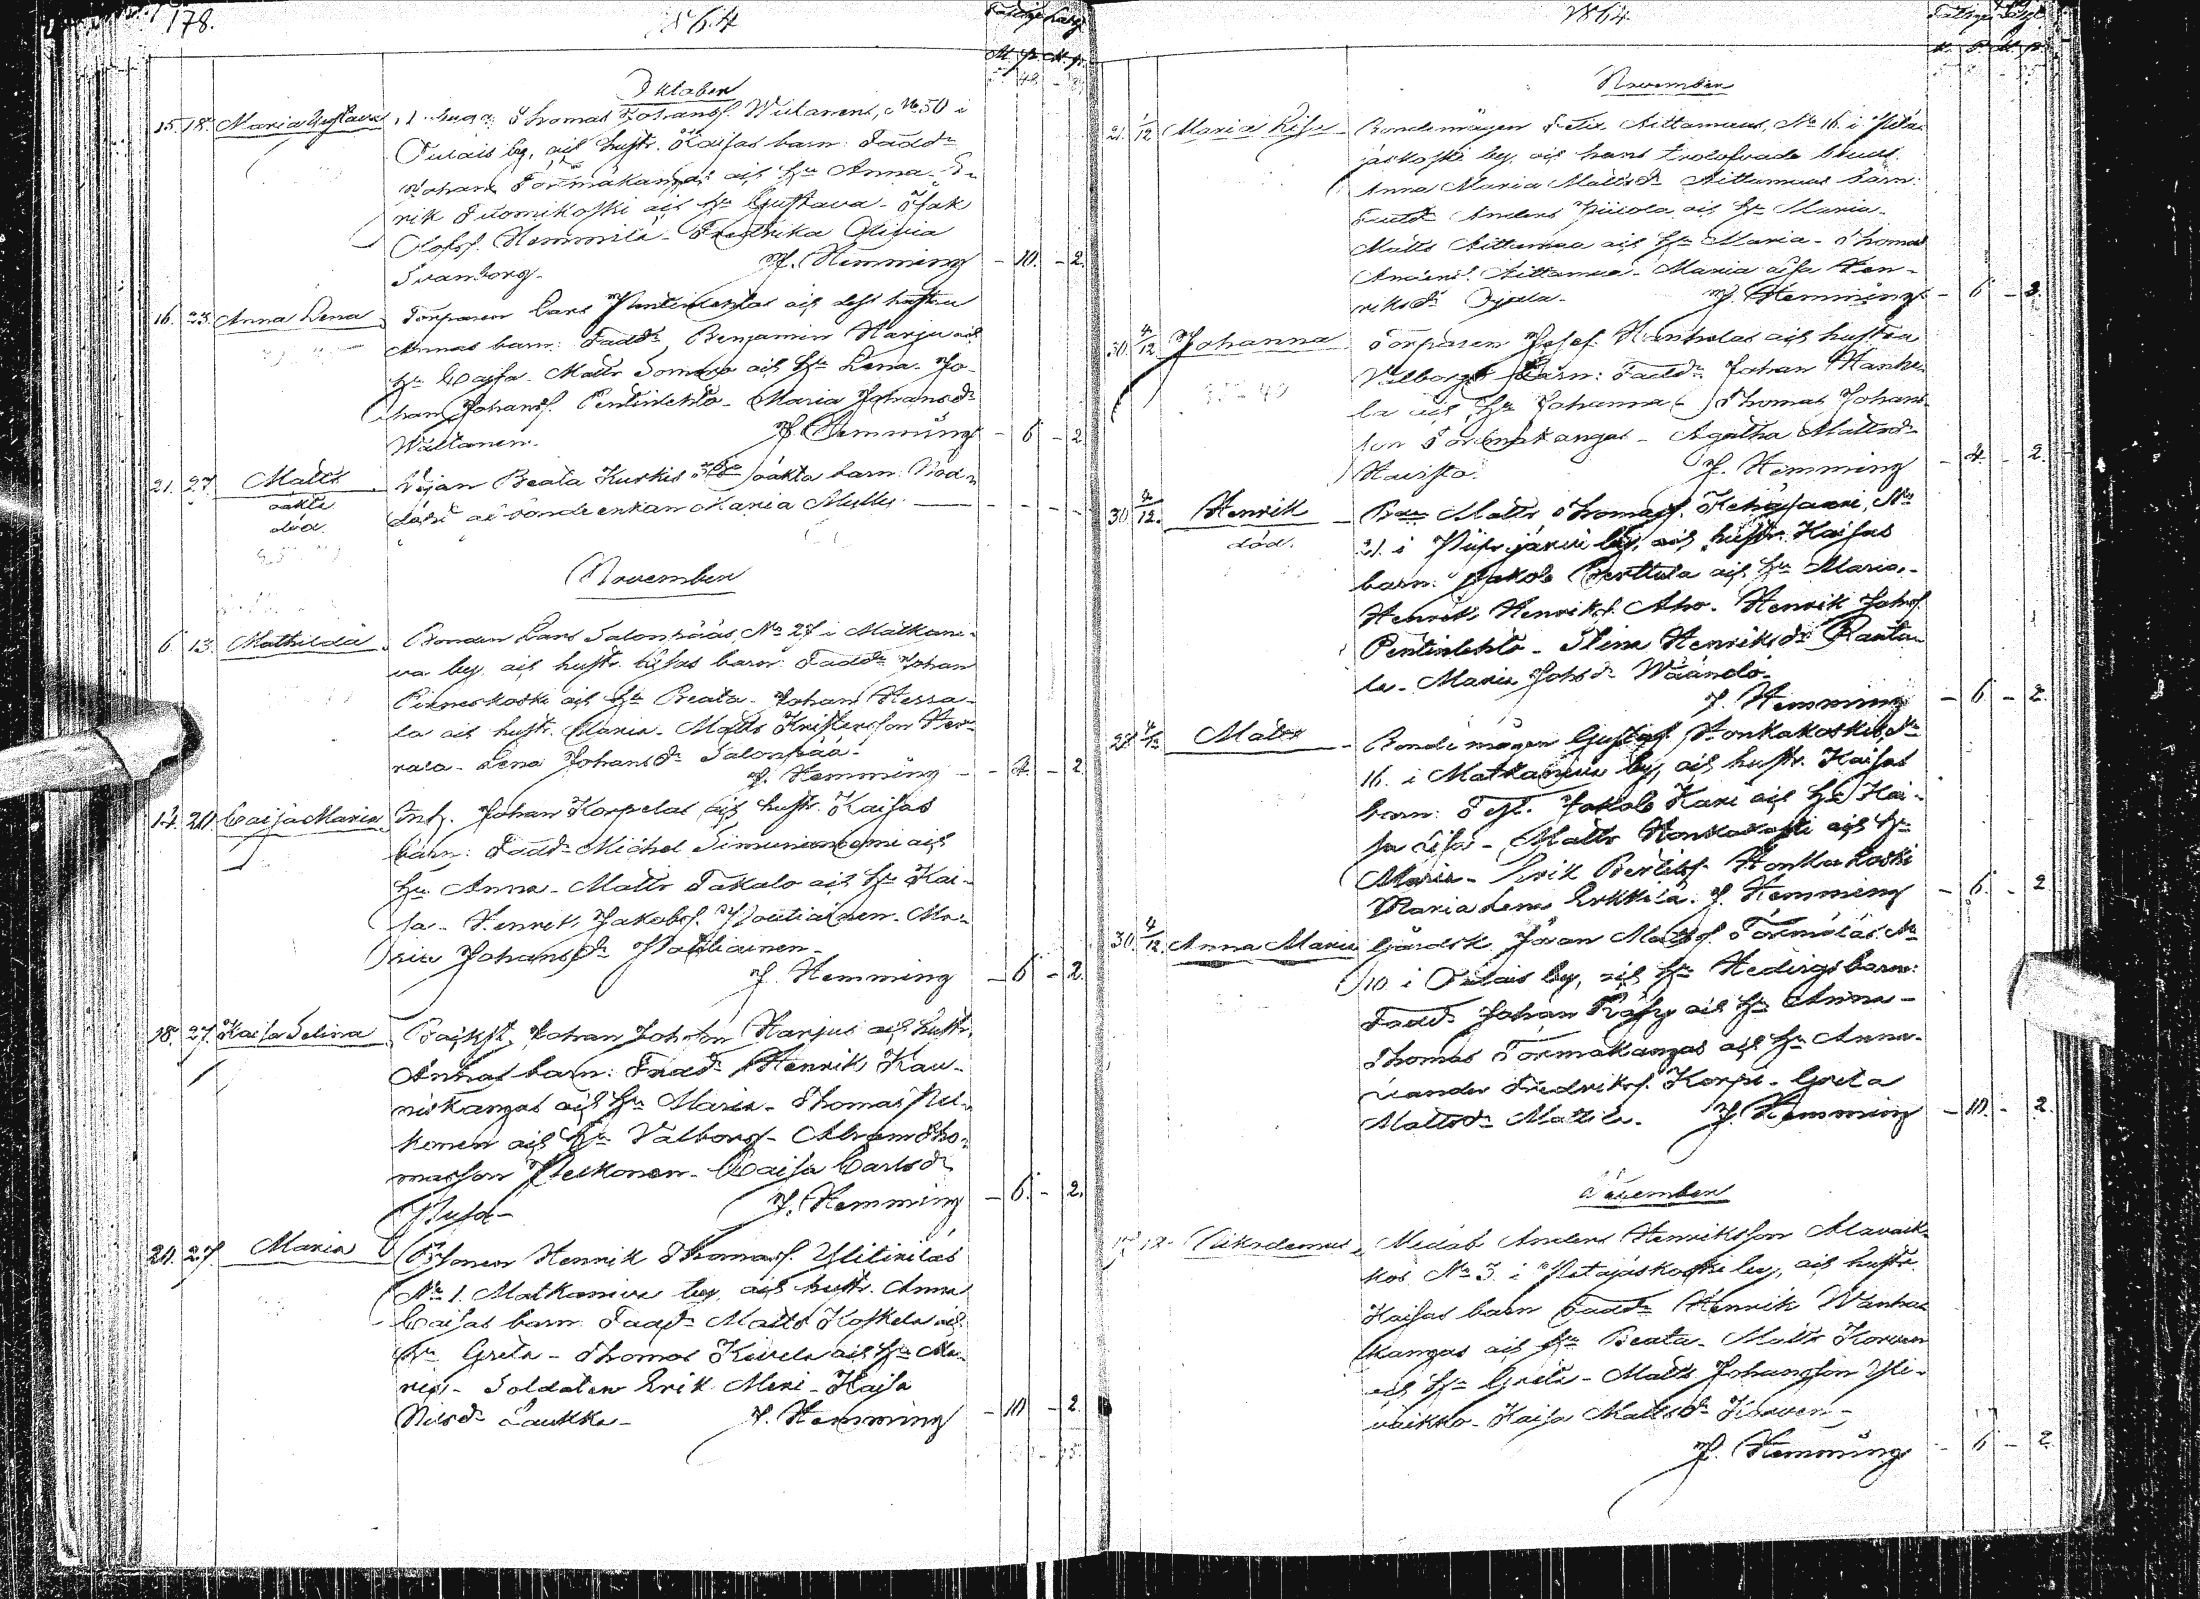 178.
1864
Oktober
15. 18. Maria Gustava Thomas Johansf. Wiitanens, No 50 i
Oulais by, och hustr. Kaisas barn: Fadd:
Johan Törmäkangas och h:u Anna - E-
rik Tuomikoski och h:u Gustava - Isak
Olofsf. Hemmilä - Fredrika Olivia
Svanborg - J. Hemming - 10. - 2.
16. 23. Anna Lena Torparen Lars Pentinlehtos och dess hustru
Annas barn: Fadd: Benjamin Harju och
h:u Cajsa - Matts Somero och h:u Lena - Jo-
han Johansf. Pentinlehto - Maria Johansd:r
Wiiltanen. J. Hemming - 6 - 2
21. 27. Matts Pigan Beata Kurkis oäkta barn: Nöd-
oäkta döpt af bonde enkan Maria
död.
November
6. 13. Mathilda Bonden Lars Salonpääs, No 27 i Matkani-
va by, och hustr. Lisas barn: Fadd: Johan
Pirneskoski och h:u Beata - Johan Hessa-
la och hustr. Maria - Matts Kristersson Her-
rala - Lena Johansd:r Salonpää -
J. Hemming - 4. - 2
14. 20. Caisa Maria Inh. Johan Korpelas och hustr. Kaisas
barn: Fadd: Michel Simunienniemi och
h:u Anna - Matts Takalo och h:u Kai-
sa - Henrik Jakobsf. Poutiainen - Ma-
ria Johansd:r Poutiainen -
J. Hemming - 6 - 2.
18. 27. Kaisa Selina Backst. Johan Johnson Harjus och hustr.
Annas barn: Fadd: Henrik Kau-
niskangas och h:u Maria - Thomas Pel-
konen och h:u Valborg - Abram Tho-
masson Pelkonen - Caisa Carlsd:r
J. Hemming - 6. - 2.
20. 27. Maria Bonden Henrik Thomasf. Ylitirilas
No 1. Matkaniva by, och hustr. Anna
Caisas barn: Fadd: Matts Koskela och
h:u Greta - Thomas Kivela och h:u Ma-
ria - Soldaten Erik Meri - Kaisa
Nilsd:r Laukka - J. Hemming - 10 - 2.
1864
November
21. 1/12 Maria Lisa Bondemågen Felix Aittamaas, No 16. i Petä-
jäskoski by, och hans trolofvade brud
Anna Maria Mattsd:r Aittamaas barn:
Fadd: Anders Piirola och h:u Maria -
Matts Aittamaa och h:u Maria - Thomas
Andersf. Aittamaa - Maria Lisa Hen-
riksd:r Ojala - J. Hemming - 6 - 2.
30. 4/12 Johanna Torparen Josef Hankelas och hustru
Valborgs barn: Fadd: Johan Hanke-
la och h:u Johanna - Thomas Johans-
son Törmäkangas - Agatha Mattsd:r
J. Hemming - 4. - 2.
30. 4/12. Henrik Matts Thomasf. Kehäsaari, No
död. 21. i Piipsjärvi by, och hustr. Kaisas
barn: Jakob Perttula och h:u Maria -
Henrik Henriksf. Aho - Henrik Johsf.
Pentinlehto - Stina Henriksd:r Ranta-
la - Maria Johsd:r Wäändö -
J. Hemming - 6 - 2.
4/12 Matts Bondemågen Gustaf Honkakoskis, No
16. i Matkaniva by, och hustr. Kaisas
barn: Test. Jakob Kari och h:u Kai-
sa Lisa - Matts Honkakoski och h:u
Maria - Erik Bertilsf. Honkakoski
Maria Lena Erkkilä. J. Hemming - 6. - 2
30. 4/12. Anna Maria Göran Mattsf. Törmäläs No
10 i Oulais by, och h:u Hedvigs barn:
Fadd: Johan och h:u Anna -
Thomas Törmäkangas och h:u Anna -
Leander Fredriksf. Korpi - Greta
Mattsd:r Mattila. J. Hemming - 10. - 2.
December
12. Nikodemus Anders Henriksson Alavaik-
kos No 3. i Petäjäskoski by, och hustr.
Kaisas barn: Fadd: Henrik Wanhas
kangas och h:u Beata - Matts Korven
och h:u Greta - Matts Johansson Yli-
vaikko - Kaisa Mattsd:r Korven -
J. Hemming - 6 - 2.